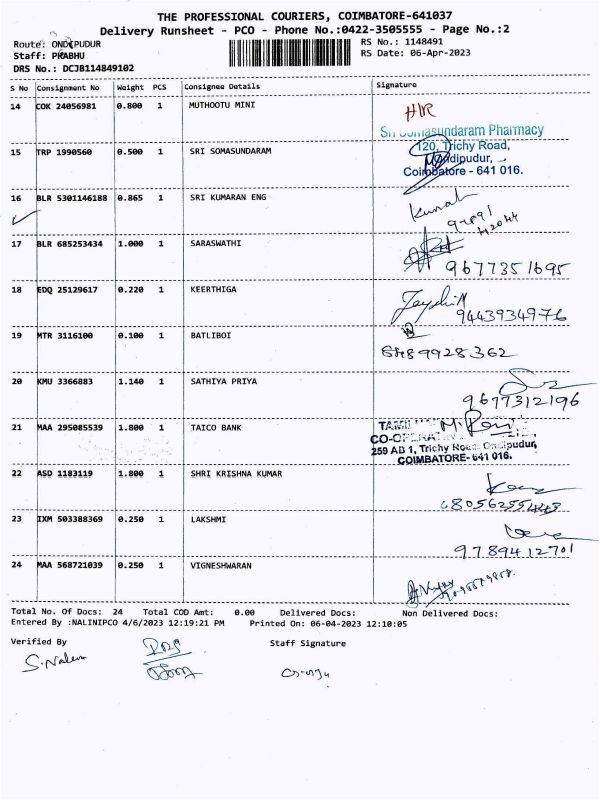 THE PROFESSIONAL COURIERS, COIMBATORE-641037
Delivery Runsheet - PCO - Phone No.:0422-3505555 - Page No.:2
Route: ONDIPUDUR
RS No.: 1148491
Staff: PRABHU
RS Date: 06-Apr-2023
DRS No.: DCJB114849102
S No Consignment No Weight PCS Consignee Details Signature
14 COK 24056981 0.800 1 MUTHOOTU MINI
Sri Somasundaram Pharmacy
120, Trichy Road,
15 TRP 1990560 0.500 1 SRI SOMASUNDARAM
Ondipudur,
Coimbatore - 641 016.
16 BLR 5301146188 0.865 1 SRI KUMARAN ENG
17 BLR 685253434 1.000 1 SARASWATHI
9677351695
18 EDQ 25129617 0.220 1 KEERTHIGA
9443934976
19 MTR 3116100 0.100 1 BATLIBOI
20 KMU 3366883 1.140 1 SATHIYA PRIYA
9677312196
21 MAA 295085539 1.800 1 TAICO BANK
259 AB 1, Trichy Road, Ondipudur,
COIMBATORE- 641 016.
22 ASD 1183119 1.800 1 SHRI KRISHNA KUMAR
23 IXM 503388369 0.250 1 LAKSHMI
9789412701
24 MAA 568721039 0.250 1 VIGNESHWARAN
Total No. Of Docs: 24 Total COD Amt: 0.00 Delivered Docs: Non Delivered Docs:
Entered By :NALINIPCO 4/6/2023 12:19:21 PM Printed On: 06-04-2023 12:10:05
Verified By Staff Signature